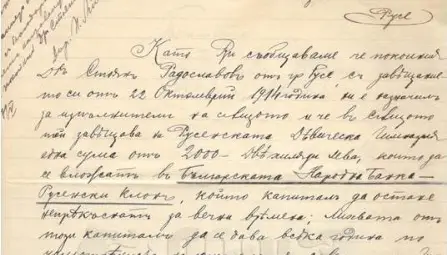 Русе
Като Ви съобщаваме че покойния
Д-въ Стоянъ Радославовъ отъ гр Русе съ завещание
то си отъ 22 Октомврий 1914 година ни е назначилъ
за изпълнители на същото и че въ същото
той завещава на Русенската Девическа Гимназия
една сума отъ 2000 - Две хиляди лева, които да
се вложатъ въ Българската Народна Банка
Русенски клонъ, който капиталъ да остане
непрекъснатъ за вечни времена; Лихвата отъ
този капиталъ да се дава всека година по